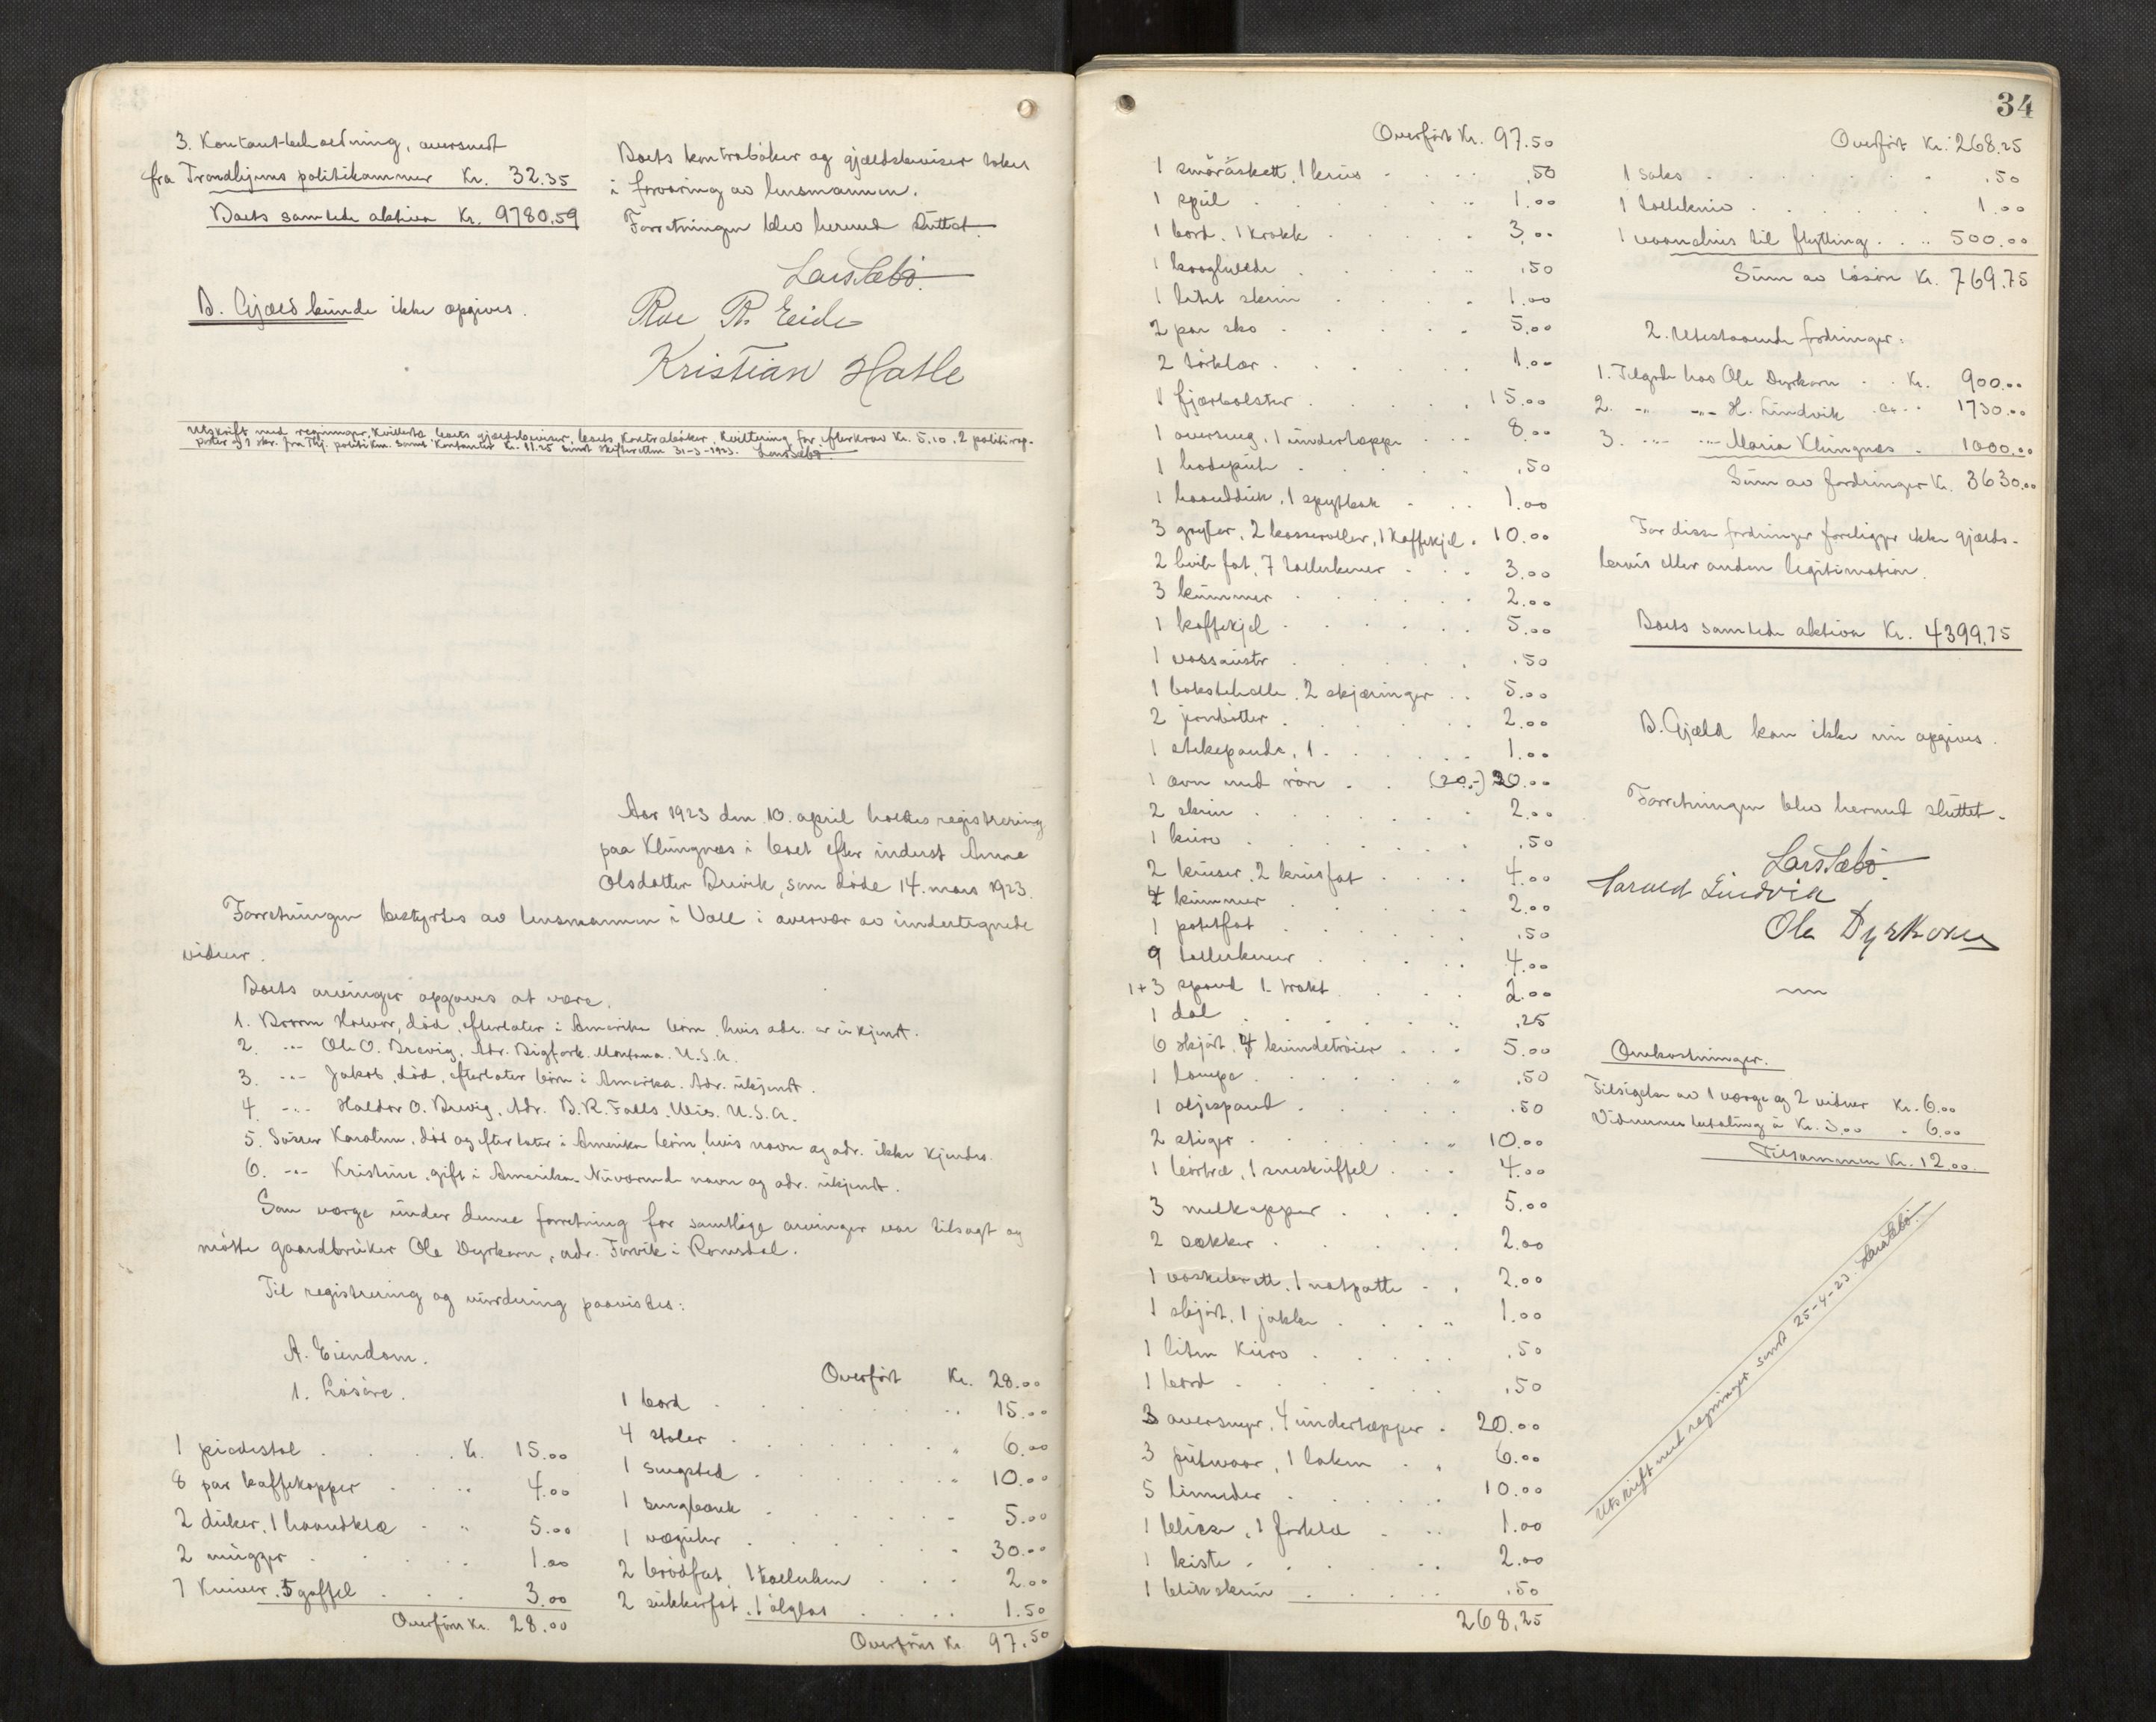 3. Kontantbeholdning, oversendt
fra Trondhjems politikammer Kr. 32.35
Boets samlede aktiva Kr. 9780.59
B. Gjæld kunde ikke opgives.
Boets kontrabøker og gjældsbeviser tokes
i forvaring av lensmannen.
Forretningen blev hermed sluttet.
Lars Sæbø.
Roe R. Eide
Kristian Hatle
Utskrift med regninger, kvitterte boets gjældsbeviser, boets kontrabøker, kvittering for efterkrav Kr. 5.10, 2 politirap-
porter og 1 skr. fra Thj. politikm. samt kontanter Kr. 11.25 sendt skifteretten 31-3-1923. Lars Sæbø.
Aar 1923 den 10. april holdtes registrering
paa Klungnæs i boet efter inderst Anne
Olsdatter Brevik, som døde 14. mars 1923.
Forretningen bestyrtes av lensmannen i Voll i overvær av undertegnede
vidner.
Boets arvinger opgaves at være.
1. Broren Halvor, død, efterlater i Amerika børn, hvis adr. er ukjent.
2. -"- Ole O. Brevig, Adr. Bigfork. Montana. U.S.A.
3. -"- Jakob, død, efterlater børn i Amerika. Adr. ukjendt.
4. -"- Haldor O. Brevig, Adr. B.R. Falls. Wis. U.S.A.
5. Søster Karoline, død og efterlater i Amerika børn, hvis navn og adr. ikke kjendes.
6. -"- Kristine, gift i Amerika. Nuværende navn og adr. ukjendt.
Som værge under denne forretning for samtlige arvinger var tilsagt og
møtte gaardbruker Ole Dyrkorn, adr. Torvik i Romsdal.
Til registrering og vurdering paavistes:
A. Eiendom.
1. Løsøre.
1 piedestal . . . . Kr. 15.00
8 par kaffekopper . . . " 4.00
2 duker, 1 haandklæ . " 5.00
2 mugger . . . . . 1.00
7 kniver, 5 gaffel . . . 3.00
Overføres Kr. 28.00
Overført Kr. 28.00
1 bord . . . . . . " 15.00
4 stoler . . . . . . " 6.00
1 sengsted . . . . . " 10.00
1 sengbænk . . . . . " 5.00
1 væguhr . . . . . " 30.00
2 brødfat, 1 tallerken . . . 2.00
2 sukkerfat, 1 ølglas . . . . 1.50
Overføres Kr. 97.50
34
Overført Kr. 97.50
1 smøræskett, 1 krus . . . . .50
1 speil . . . . . " 1.00
1 bord, 1 krakk . . . . . 3.00
1 . . . . " .50
1 litet skrin . . . . . 1.00
2 par sko . . . . . 5.00
2 tørklær . . . . . . 1.00
1 fjærbolster . . . . . 15.00
1 overtreg, 1 undertæppe . . . 8.00
1 hodepute . . . . . .50
1 haandduk, 1 spytbak . . . 1.00
3 gryter, 2 kasseroller, 1 kaffekjel . 10.00
2 hvite fat, 7 tallerkener . . . 3.00
3 kummer . . . . . . 2.00
1 kaffekjel . . . . . . 5.00
1 vassaustr . . . . . .50
1 bakstehelle, 2 skjæringer . . 5.00
2 jernbøtter . . . . . . 2.00
1 stekepande, 1 . . . . . 1.00
1 ovn med rør . . (20.-) 20.00
2 skrin . . . . . . 2.00
1 kurv . . . . . . .50
2 kruser, 2 krusfat . . . . 4.00
4 kummer . . . . . . 2.00
1 potetfat . . . . . . .50
9 tallerkener . . . . . 4.00
1+3 spand 1 trakt . . . . 2.00
1 dal . . . . . . " .25
6 skjørt, 4 kvindetrøier . . . 5.00
1 lampe . . . . . . " .50
1 oljespand . . . . . .50
2 stiger . . . . . . " 10.00
1 børtræ, 1 sneskuffel . . . 4.00
3 melkopper . . . . 5.00
2 sækker . . . . . 2.00
1 vaskebrett, 1 natpotte . . 2.00
1 skjørt, 1 jakke . . . . " 1.00
1 liten kurv . . . . . .50
1 bord . . . . . . .50
3 overtreger, 4 undertæpper . 20.00
3 putevaar, 1 laken . . 6.00
5 . . . . . 10.00
1 bluse, 1 forklæ . . . 1.00
1 kiste . . . . . . 2.00
1 blikskrin . . . . . .50
268.25
Overført Kr. 268.25
1 saks . . . . . . . .50
1 tollekniv . . . . . . 1.00
1 vaanehus til flytning . . " 500.00
Sum av løsøre Kr. 769.75
2. Utestaaende fordringer:
1. Tilgode hos Ole Dyrkorn . . Kr. 900.00
2. -"- -"- H. Lindvik ca. . . 1730.00
3. -"- -"- Maria Klungnæs . 1000.00
Sum av fordringer Kr. 3630.00
For disse fordringer foreligger ikke gjælds-
bevis eller anden legitimation.
Boets samlede aktiva Kr. 4399.75
B. Gjæld kan ikke nu opgives.
Forretningen blev hermed sluttet.
Lars Sæbø.
Harald Lindvik
Ole Dyrkorn
Omkostninger.
Tilsigelse av 1 værge og 2 vidner Kr. 6.00
Vidnernes betaling à Kr. 3.00 " 6.00
Tilsammen Kr. 12.00.
Utskrift med regninger sendt 25-4-23. Lars Sæbø.